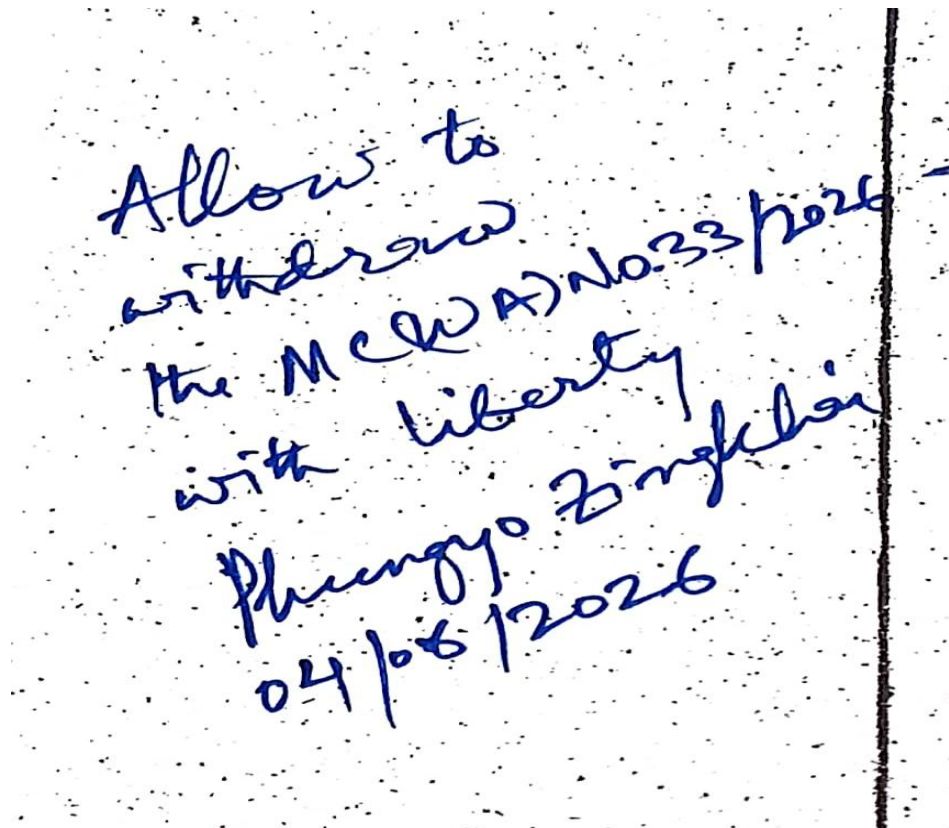 Allow to
withdraw
the MC(WA) No.33/2026 -
with liberty
Phungyo Zingkhai
04/06/2026